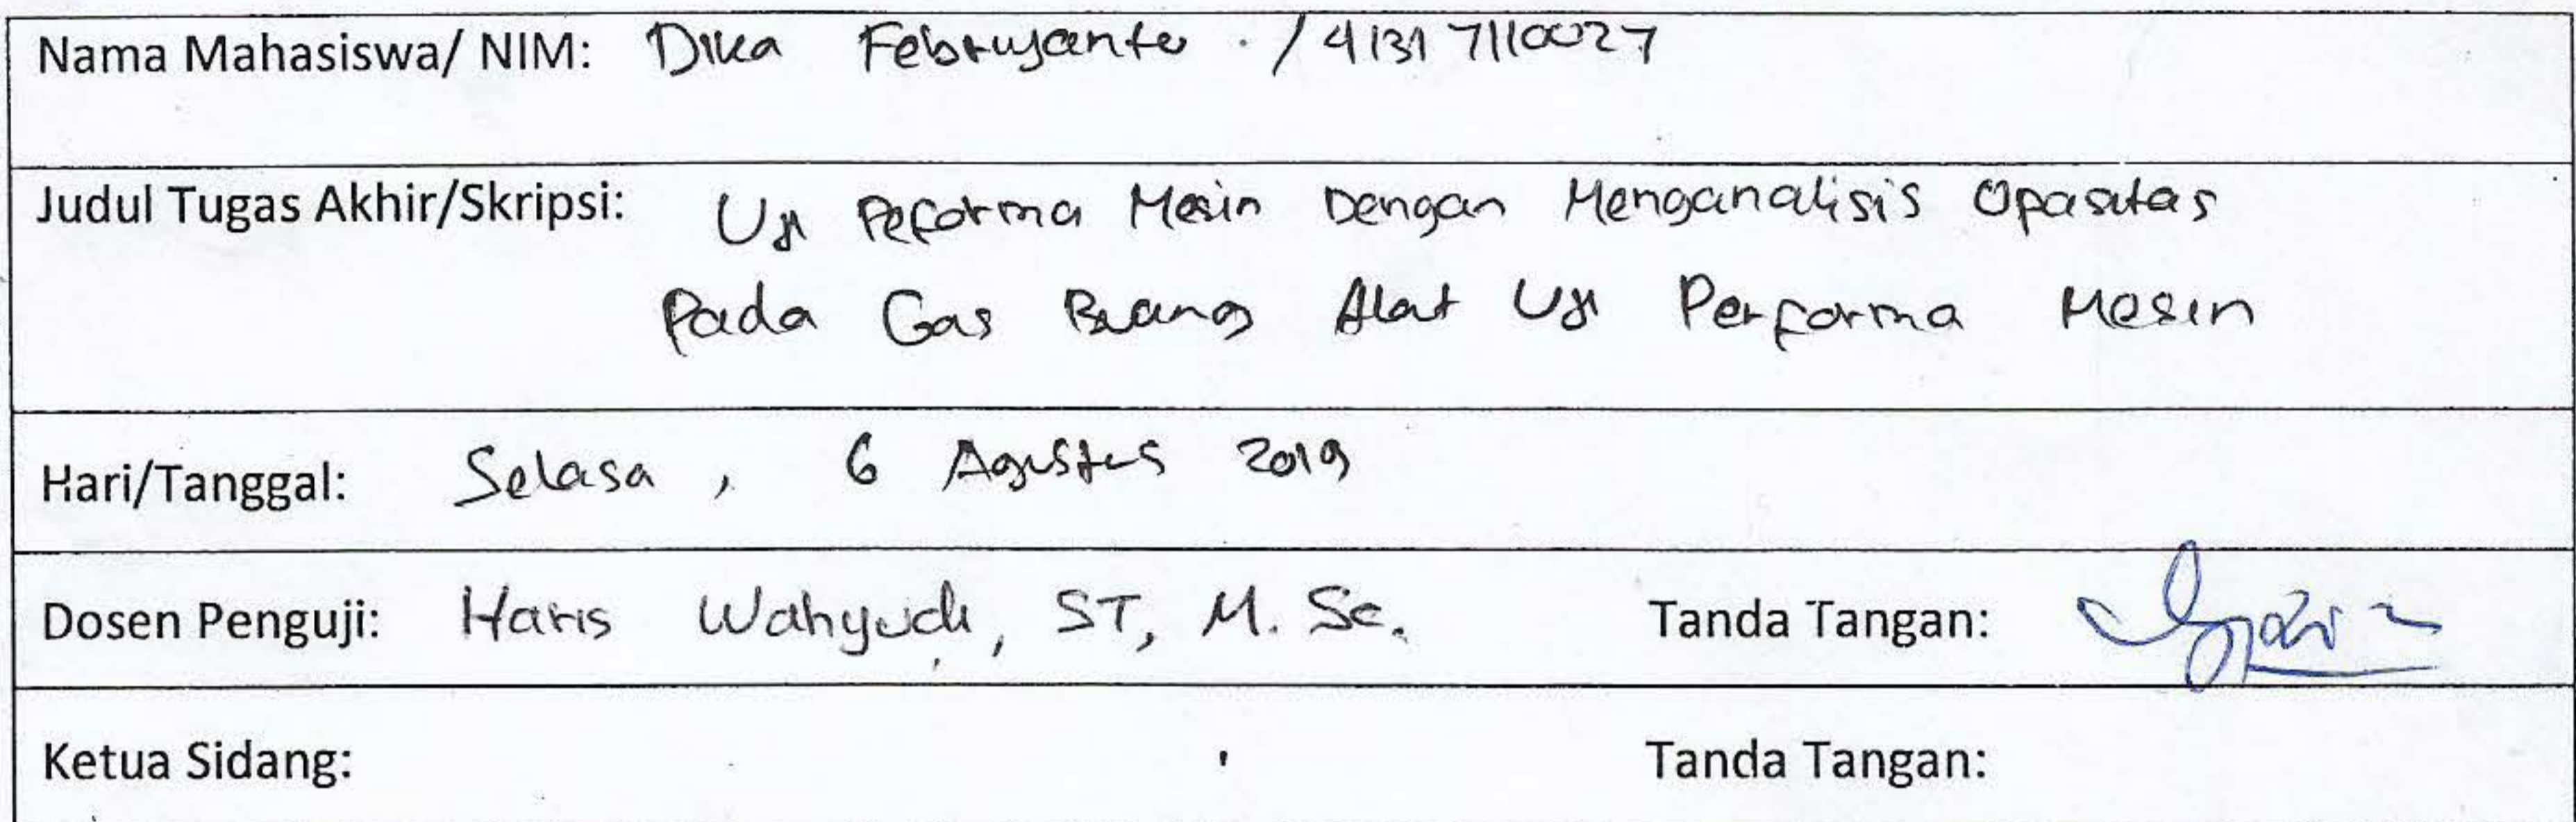 Nama Mahasiswa/ NIM: Dika Februyanto . / 41317110027
Judul Tugas Akhir/Skripsi: Uji Peforma Mesin Dengan Menganalisis Opasitas
Pada Gas Buang Alat Uji Performa Mesin
Hari/Tanggal: Selasa , 6 Agustus 2019
Dosen Penguji: Haris Wahyudi, ST, M. Sc. Tanda Tangan:
Ketua Sidang: Tanda Tangan: